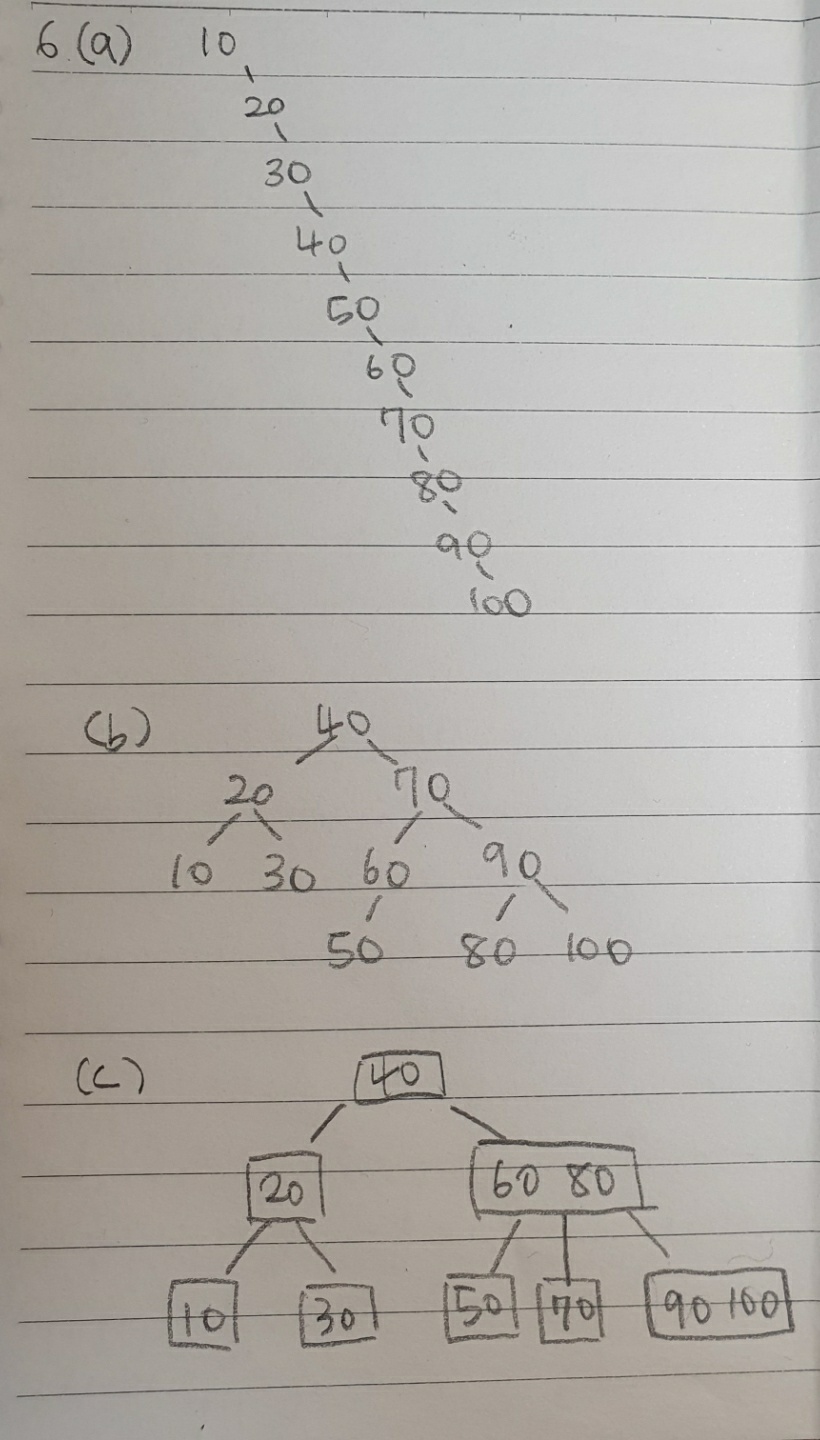 6 (a) 10
20
30
40
50
60
70
80
90
100
(b) 40
20 70
10 30 60 90
50 80 100
(c) 40
20 60 80
10 30 50 70 90 100